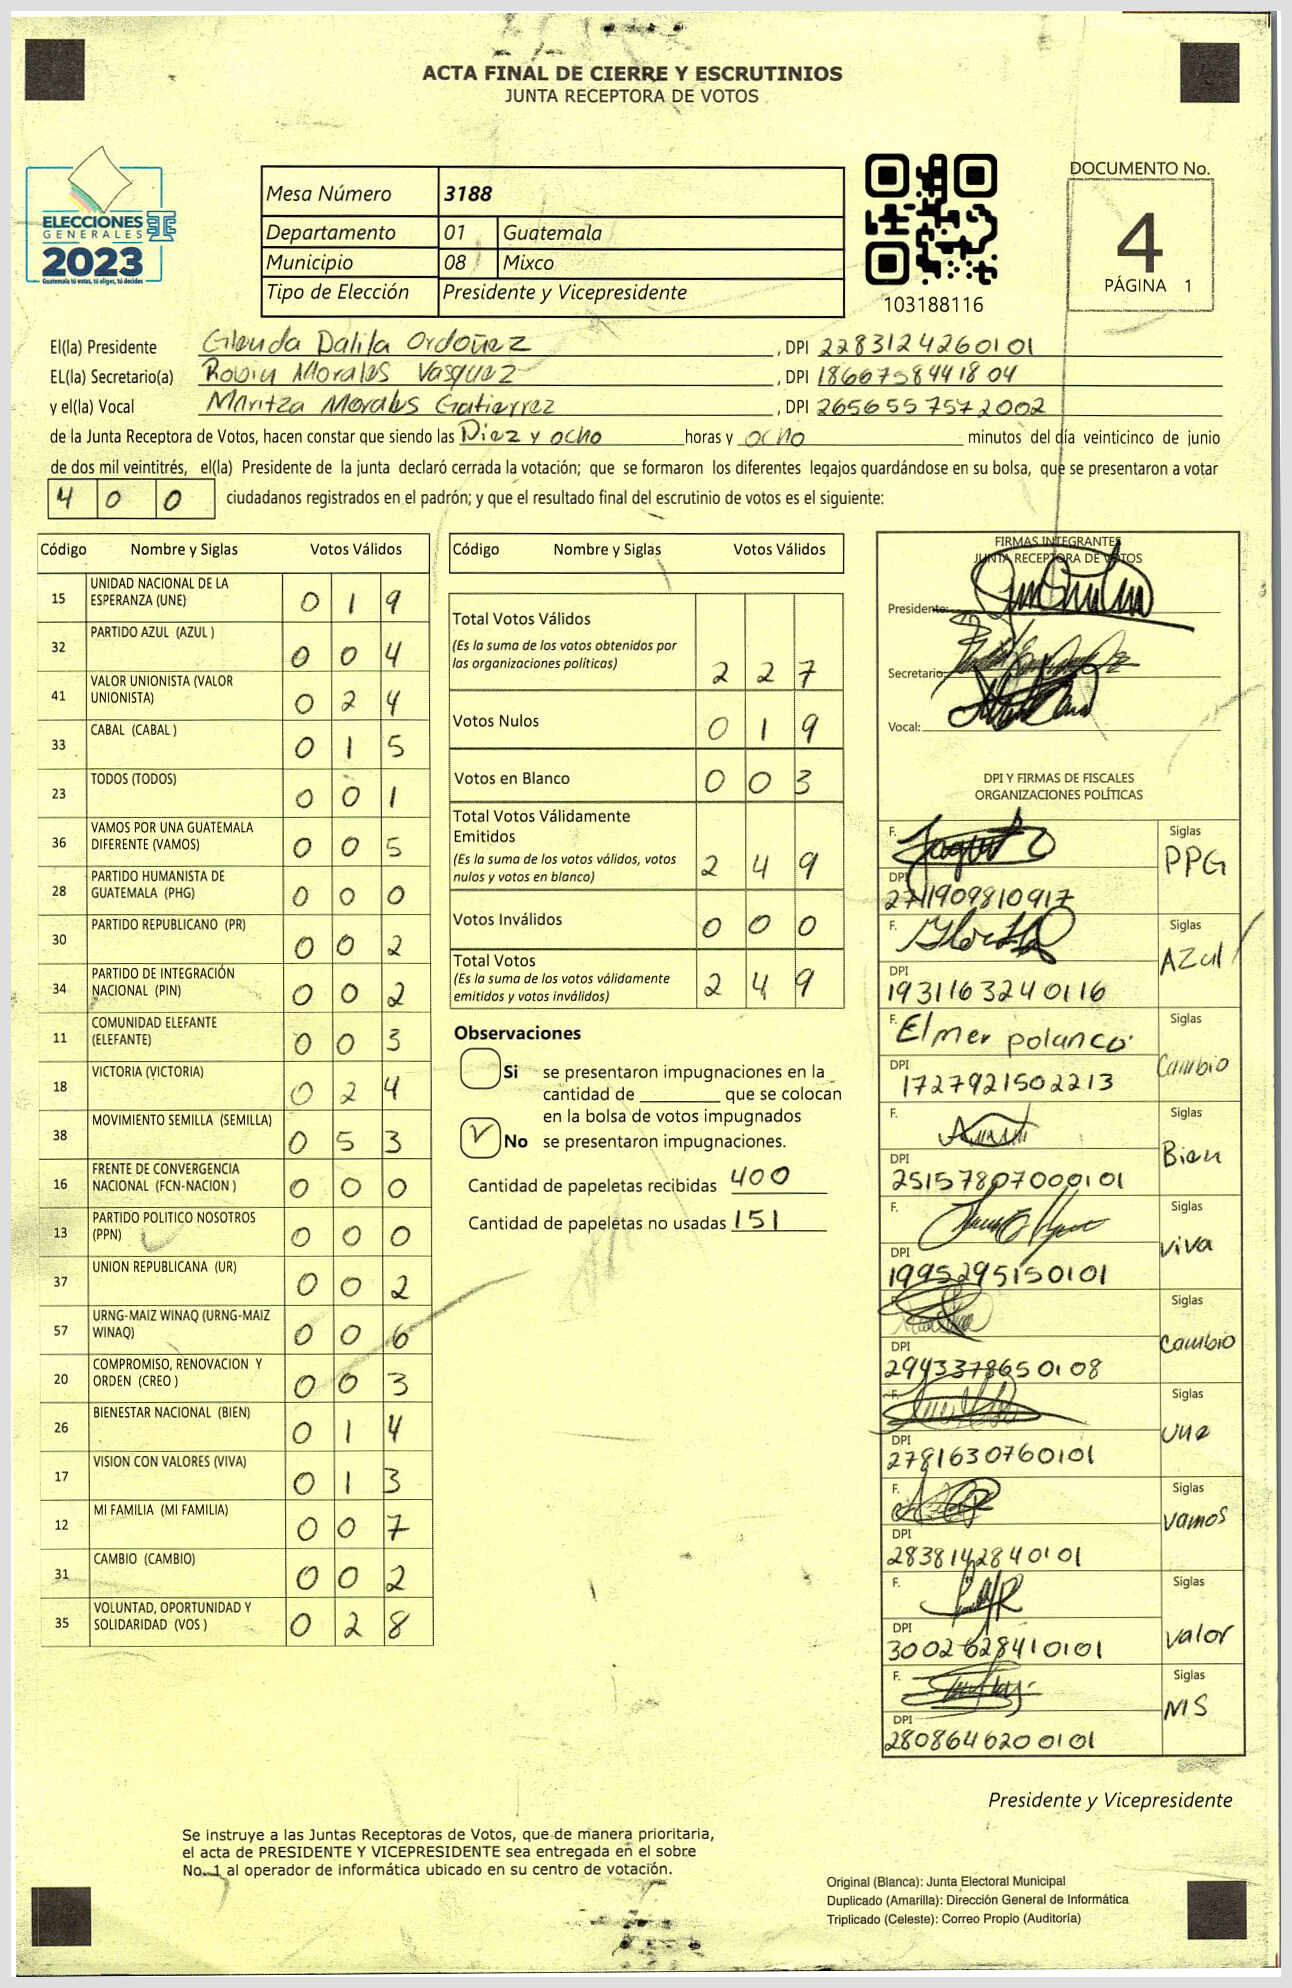 ACTA FINAL DE CIERRE Y ESCRUTINIOS
JUNTA RECEPTORA DE VOTOS
ELECCIONES
GENERALES
2023
Guatemala tú votas, tú eliges, tú decides
Mesa Número 3188
Departamento 01 Guatemala
Municipio 08 Mixco
Tipo de Elección Presidente y Vicepresidente
103188116
DOCUMENTO No.
4
PÁGINA 1
El(la) Presidente Glenda Dalila Ordoñez , DPI 2283124260101
EL(la) Secretario(a) Robin Morales Vasquez , DPI 1866758441804
y el(la) Vocal Maritza Morales Gatierrez , DPI 2656557572002
de la Junta Receptora de Votos, hacen constar que siendo las Diez y ocho horas y ocho minutos del día veinticinco de junio
de dos mil veintitrés, el(la) Presidente de la junta declaró cerrada la votación; que se formaron los diferentes legajos quardándose en su bolsa, que se presentaron a votar
4 0 0 ciudadanos registrados en el padrón; y que el resultado final del escrutinio de votos es el siguiente:
Código Nombre y Siglas Votos Válidos
15 UNIDAD NACIONAL DE LA
ESPERANZA (UNE) 0 1 9
32 PARTIDO AZUL (AZUL ) 0 0 4
41 VALOR UNIONISTA (VALOR
UNIONISTA) 0 2 4
33 CABAL (CABAL ) 0 1 5
23 TODOS (TODOS) 0 0 1
36 VAMOS POR UNA GUATEMALA
DIFERENTE (VAMOS) 0 0 5
28 PARTIDO HUMANISTA DE
GUATEMALA (PHG) 0 0 0
30 PARTIDO REPUBLICANO (PR) 0 0 2
34 PARTIDO DE INTEGRACIÓN
NACIONAL (PIN) 0 0 2
11 COMUNIDAD ELEFANTE
(ELEFANTE) 0 0 3
18 VICTORIA (VICTORIA) 0 2 4
38 MOVIMIENTO SEMILLA (SEMILLA) 0 5 3
16 FRENTE DE CONVERGENCIA
NACIONAL (FCN-NACION ) 0 0 0
13 PARTIDO POLITICO NOSOTROS
(PPN) 0 0 0
37 UNION REPUBLICANA (UR) 0 0 2
57 URNG-MAIZ WINAQ (URNG-MAIZ
WINAQ) 0 0 6
20 COMPROMISO, RENOVACION Y
ORDEN (CREO ) 0 0 3
26 BIENESTAR NACIONAL (BIEN) 0 1 4
17 VISION CON VALORES (VIVA) 0 1 3
12 MI FAMILIA (MI FAMILIA) 0 0 7
31 CAMBIO (CAMBIO) 0 0 2
35 VOLUNTAD, OPORTUNIDAD Y
SOLIDARIDAD (VOS ) 0 2 8
Código Nombre y Siglas Votos Válidos
Total Votos Válidos
(Es la suma de los votos obtenidos por
las organizaciones políticas) 2 2 7
Votos Nulos 0 1 9
Votos en Blanco 0 0 3
Total Votos Válidamente
Emitidos
(Es la suma de los votos válidos, votos
nulos y votos en blanco) 2 4 9
Votos Inválidos 0 0 0
Total Votos
(Es la suma de los votos válidamente
emitidos y votos inválidos) 2 4 9
Observaciones
Si se presentaron impugnaciones en la
cantidad de ________ que se colocan
en la bolsa de votos impugnados
No se presentaron impugnaciones.
Cantidad de papeletas recibidas 400
Cantidad de papeletas no usadas 151
FIRMAS INTEGRANTES
JUNTA RECEPTORA DE VOTOS
Presidente:
Secretario:
Vocal:
DPI Y FIRMAS DE FISCALES
ORGANIZACIONES POLÍTICAS
F. Siglas
PPG
DPI
2711909810917
F. Siglas
AZul
DPI
1931163240116
F. Elmer polanco Siglas
Cambio
DPI
1727921502213
F. Siglas
Bien
DPI
25157807000101
F. Siglas
viva
DPI
1995295150101
F. Siglas
cambio
DPI
2943378650108
F. Siglas
une
DPI
2781630760101
F. Siglas
vamos
DPI
2838142840101
F. Siglas
valor
DPI
3002628410101
F. Siglas
MS
DPI
2808646200101
Presidente y Vicepresidente
Se instruye a las Juntas Receptoras de Votos, que de manera prioritaria,
el acta de PRESIDENTE Y VICEPRESIDENTE sea entregada en el sobre
No. 1 al operador de informática ubicado en su centro de votación.
Original (Blanca): Junta Electoral Municipal
Duplicado (Amarilla): Dirección General de Informática
Triplicado (Celeste): Correo Propio (Auditoría)